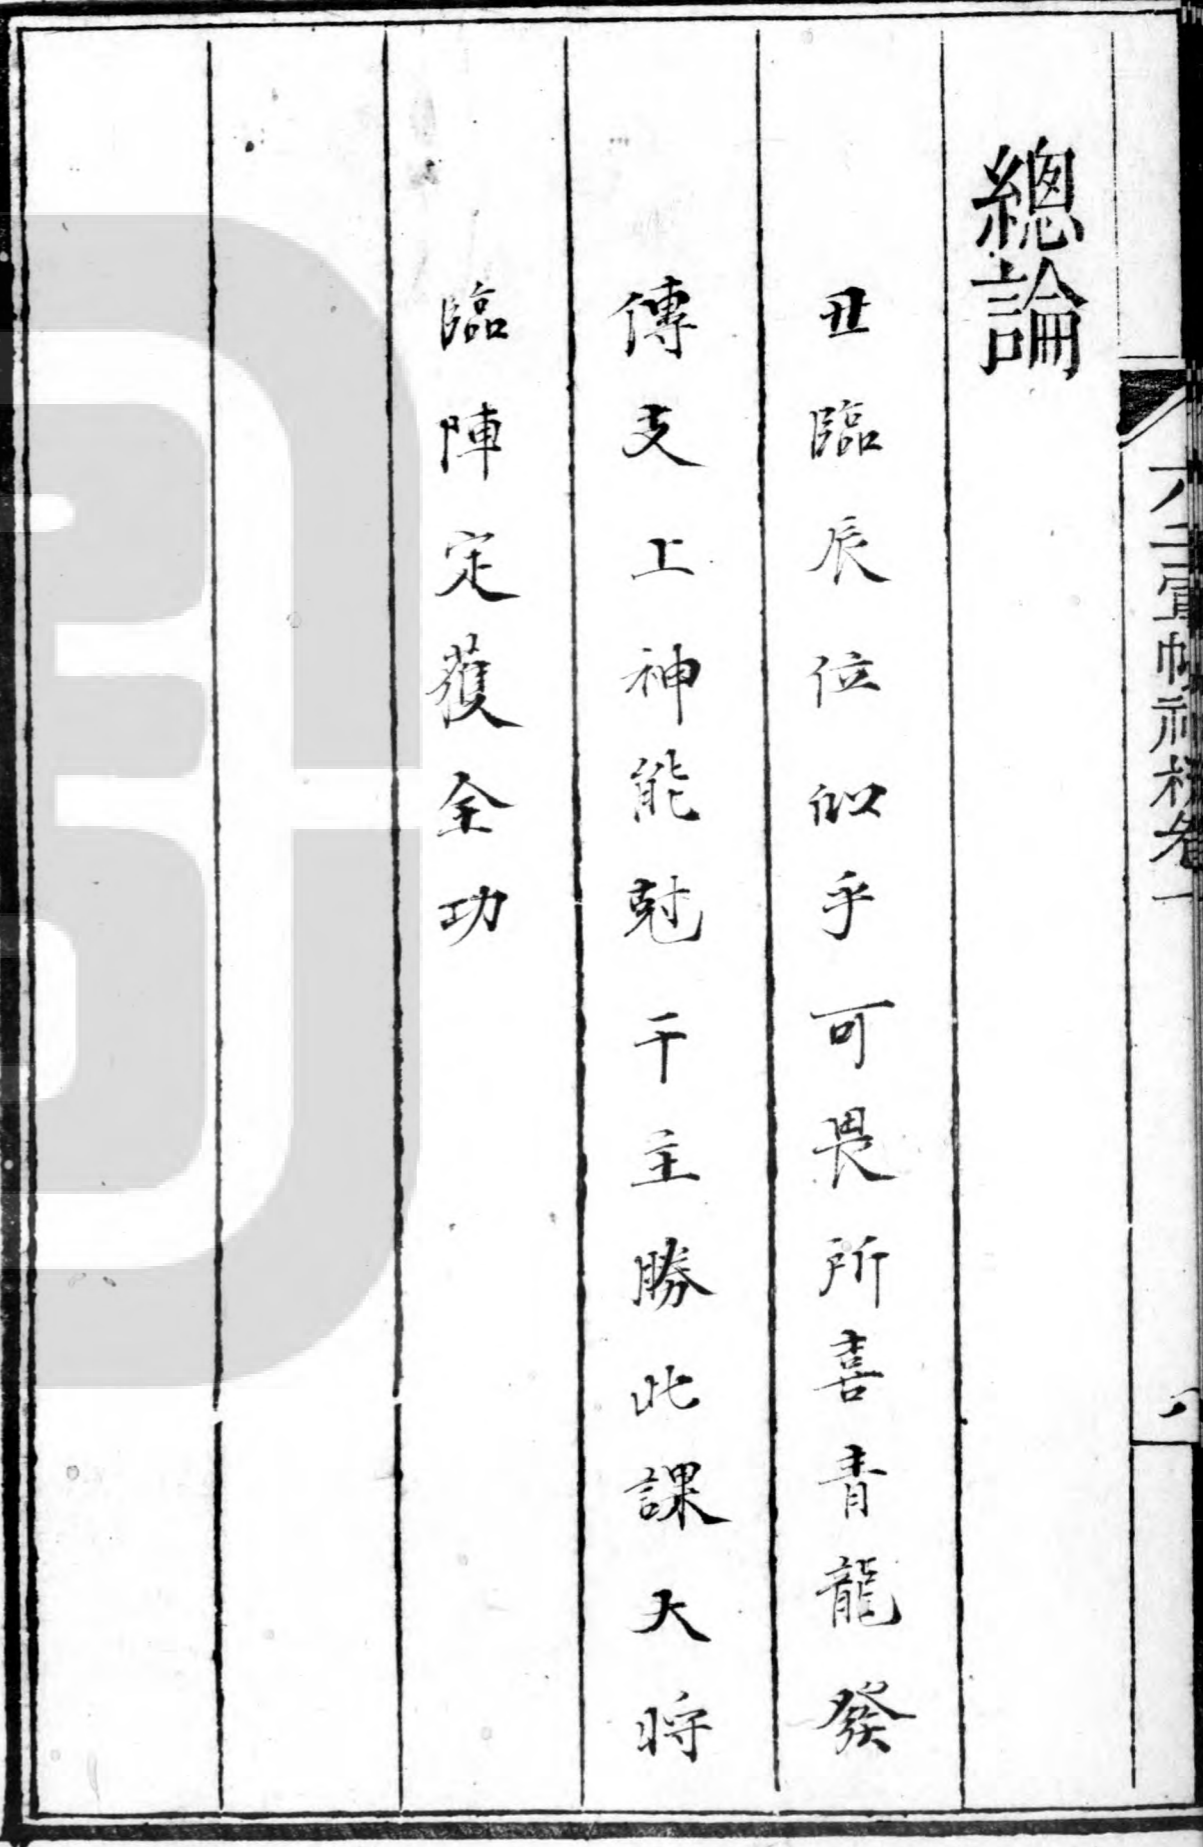 總論
丑臨辰位似乎可畏所喜青龍發
傳支上神能尅干主勝此課大將
臨陣定獲全功
六壬軍帳神機卷一